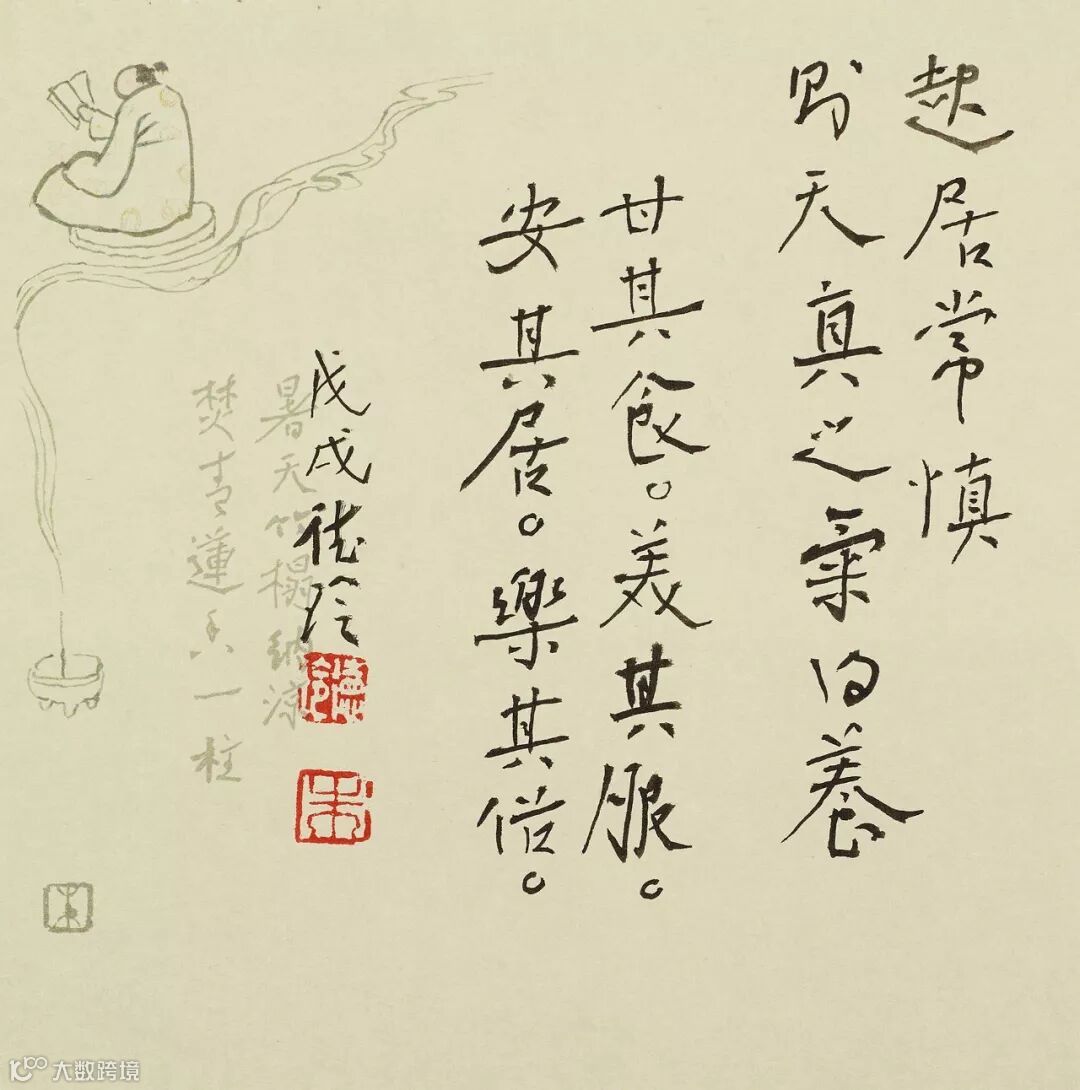 起居常慎
則天真之氣内養
甘其食。美其服。
安其居。樂其俗。
戊戌德玲
暑天竹榻納涼
焚青蓮香一柱
大数跨境